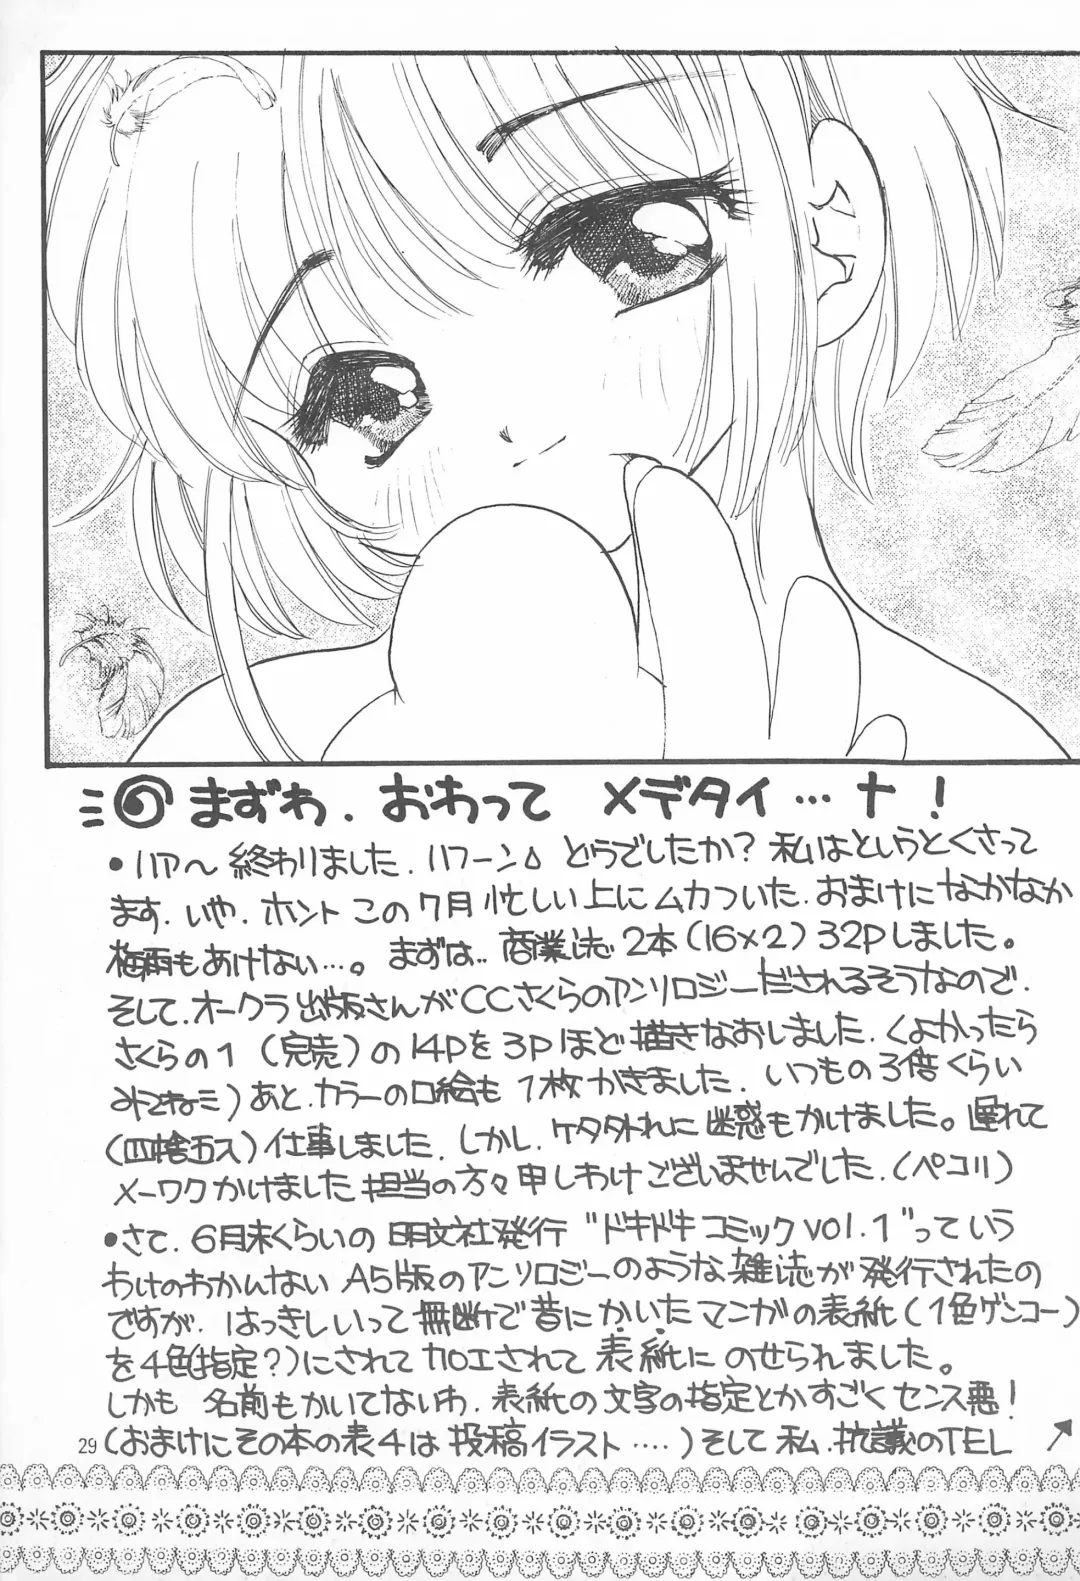 まずわ.おわって メデタイ…ナ!
•ハァ〜終わりました.ハフーン どうでしたか?私はというとくさって
ます.いや.ホント この7月 忙しい上にムカついた.おまけに なかなか
梅雨もあけない…。まずは..商業誌 2本(16×2)32Pしました。
そして.オークラ出版さんがCCさくらのアンソロジーだされるそうなので.
さくらの1 (完売)の 14Pを3Pほど描きなおしました.(よかったら
みてねミ)あと.カラーの口絵も 1枚かきました.いつもの3倍くらい
(四捨五入)仕事しました.しかし.ケタ外れに 迷惑もかけました。遅れて
メーワクかけました担当の方々申しわけございませんでした.(ペコリ)
•さて.6月末くらいの 明文社発行 "ドキドキコミックvol.1"っていう
わけのわかんない A5版のアンソロジーのような 雑誌が発行されたの
ですが.はっきしいって無断で昔にかいたマンガの表紙(1色ゲンコー)
を4色(指定?)にされて 加工されて 表紙に のせられました。
しかも 名前もかいてないわ.表紙の文字の指定とかすごくセンス悪!
(おまけにその本の表4は 投稿イラスト….)そして 私.抗議のTEL
29